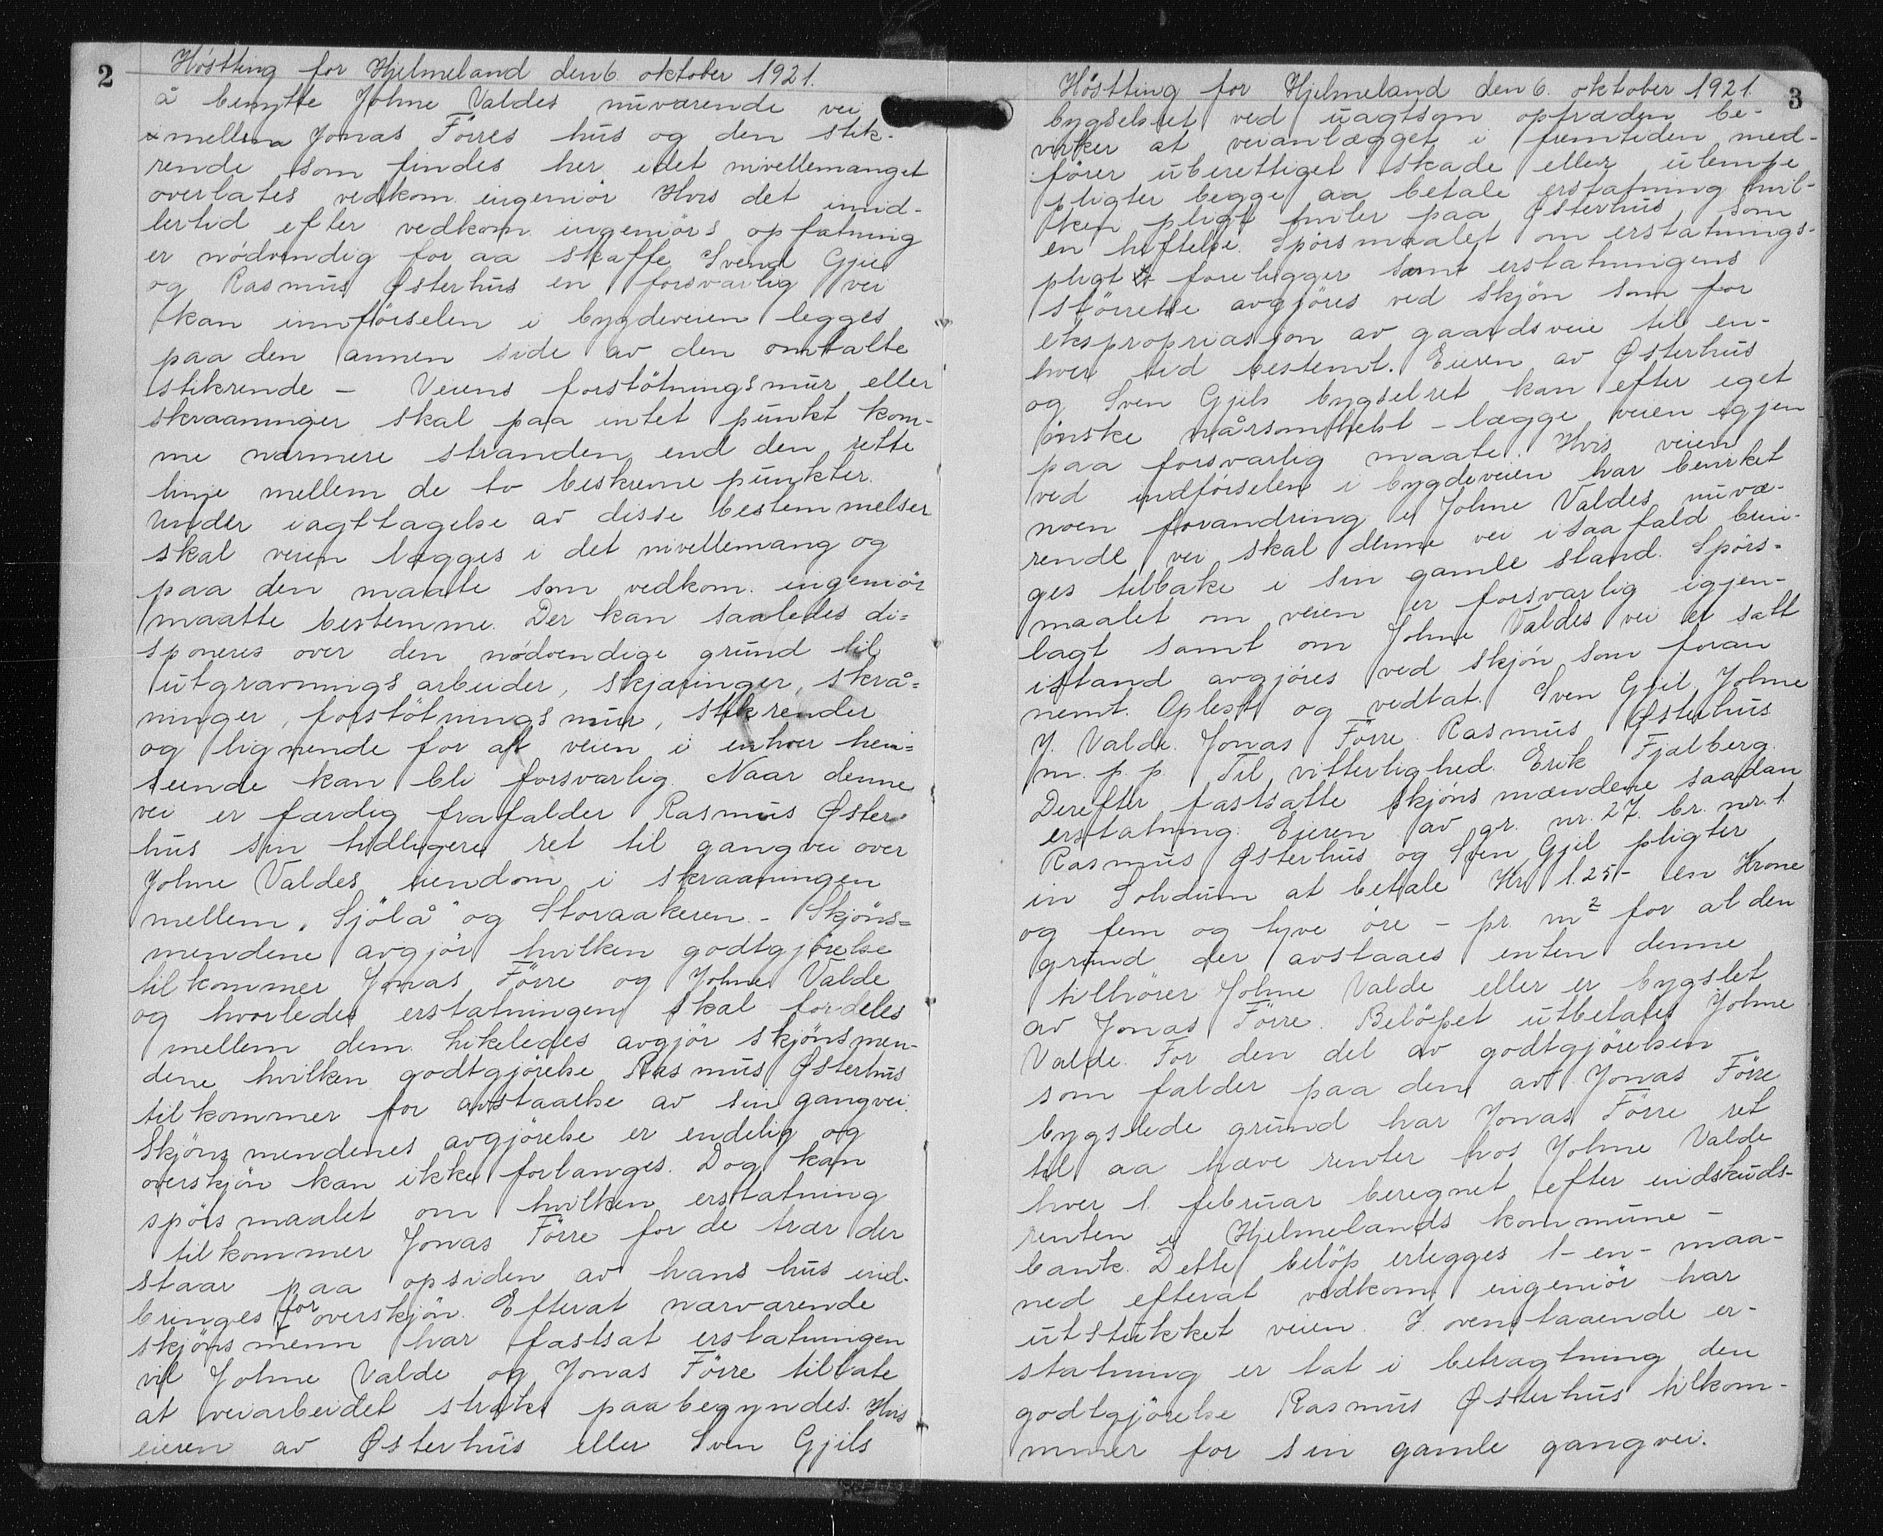 2
Høstting for Hjelmeland den 6. oktober 1921.
å benytte Johne Valdes nuværende vei
mellem Jonas Förres hus og den stik-
rende som findes her, idet nivellemanget
overlates vedkom. ingeniör Hvis det imid-
lertid efter vedkom. ingeniörs opfatning
er nödvendig for aa skaffe Svend Gjil
og Rasmus Østerhus en forsvarlig vei
kan innförselen i bygdeveien legges
paa den annen side av den omtalte
stikrende – Veiens forstötningsmur eller
skraaninger skal paa intet punkt kom-
me nærmere stranden end den rette
linje mellem de to beskrevne punkter.
Under iagttagelse av disse bestemmelser
skal veien lægges i det nivellemang og
paa den maate som vedkom. ingeniör
maatte bestemme. Der kan saaledes di-
sponeres over den nödvendige grund til
utgravningsarbeider, skjæringer, skrå-
ninger, forstötningsmur, stikrender
og lignende for at veien i enhver hen-
seende kan bli forsvarlig. Naar denne
vei er færdig frafalder Rasmus Øster-
hus sin tidligere ret til gangvei over
Johne Valdes eiendom i skraaningen
mellem „Sjölå“ og Storaakeren. – Skjöns-
mendene avgjör hvilken godtgjörelse
tilkommer Jonas Förre og Johne Valde
og hvorledes erstatningen skal fordeles
mellem dem. Likeledes avgjör skjönsmen-
dene hvilken godtgjörelse Rasmus Østerhus
tilkommer for avstaaelse av sin gangvei.
Skjönsmendenes avgjörelse er endelig og
overskjön kan ikke forlanges. Dog kan
spörsmaalet om hvilken erstatning
tilkommer Jonas Förre for de trær der
staar paa opsiden av hans hus ind-
bringes for overskjön. Efterat nærværende
skjönsmenn har fastsat erstatningen
vil Johne Valde og Jonas Förre tillate
at veiarbeidet straks paabegyndes. Hvis
eieren av Østerhus eller Sven Gjils
3
Høstting for Hjelmeland den 6. oktober 1921.
bygselret ved uagtsom optræden be-
virker at veianlægget i fremtiden med-
förer uberettiget skade eller ulempe
pligter begge aa betale erstatning hvil-
ken pligt hviler paa Østerhus som
en heftelse. Spörsmaalet om erstatnings-
pligt foreligger samt erstatningens
störrelse avgjöres ved skjön som for
ekspropriasjon av gaardsveie til en-
hver tid bestemt. Eieren av Østerhus
og Sven Gjils bygselret kan efter eget
önske nårsomhelst – lægge veien igjen
paa forsvarlig maate. Hvis veien
ved indförselen i bygdeveien har bevirket
noen forandring i Johne Valdes nuvæ-
rende vei skal denne vei i saa fald brin-
ges tilbake i sin gamle stand. Spörs-
maalet om veien er forsvarlig igjen-
lagt samt om Johne Valdes vei er satt
istand avgjöres ved skjön som foran
nemt. Oplest og vedtat. Sven Gjil, Johne
J. Valde. Jonas Förre. Rasmus Østerhus
m. p. p. Til vitterlighed. Erik Fjalberg.
Derefter fastsatte skjönsmændene saadan
erstatning: Eieren av gr. nr. 27. br. nr. 1.
Rasmus Østerhus og Sven Gjil pligter
in Solidum at betale Kr 1.25 – en Krone
og fem og tyve öre – pr. m² for al den
grund der avstaaes enten denne
tilhörer Johne Valde eller er bygslet
av Jonas Förre. Belöpet utbetales Johne
Valde. For den del av godtgjörelsen
som falder paa den av Jonas Förre
bygslede grund har Jonas Förre ret
til aa hæve renter hos Johne Valde
hver 1. februar beregnet efter indskuds-
renten i Hjelmelands kommune –
bank. Dette belöp erlegges 1 – en – maa-
ned efterat vedkom. ingeniör har
utstukket veien. I ovenstaaende er-
statning er tat i betragtning den
godtgjörelse Rasmus Østerhus tilkom-
mmer for sin gamle gangvei.